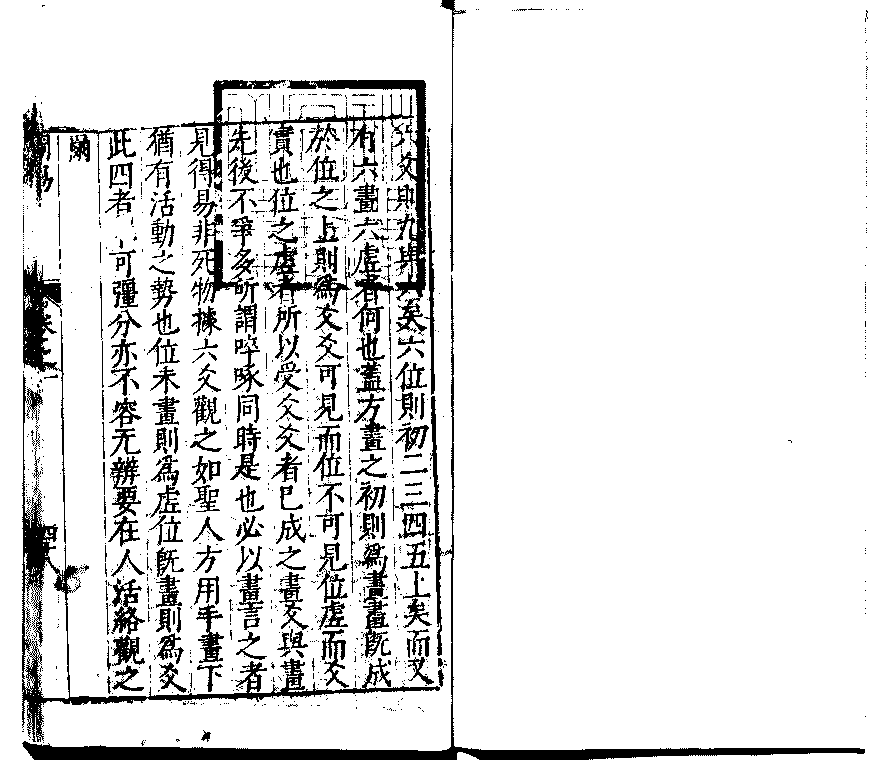 六爻則九與六矣六位則初二三四五上矣而又
有六畫六虛者何也蓋方畫之初則爲畫畫既成
於位之上則爲爻爻可見而位不可見位虛而爻
實也位之虛者所以受爻爻者已成之畫爻與畫
先後不爭多所謂啐啄同時是也必以畫言之者
見得易非死物據六爻觀之如聖人方用手畫下
猶有活動之勢也位未畫則爲虛位既畫則爲爻
此四者可彊分亦不容无辨要在人活絡觀之
爾
周易
卷之一
四十八